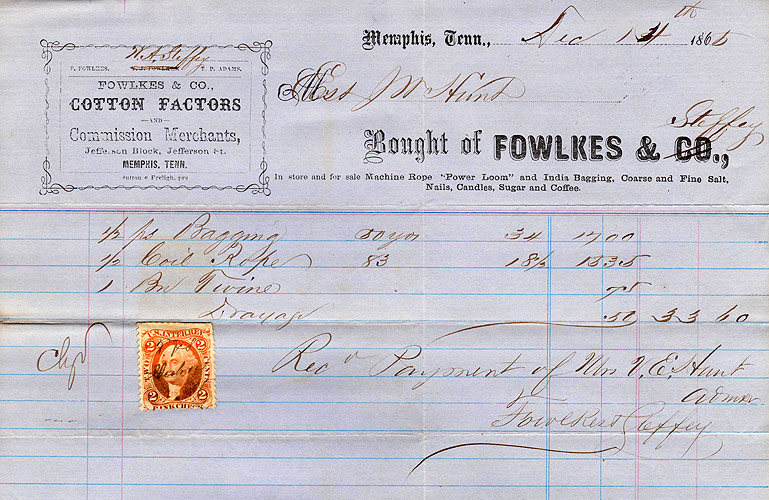 Memphis, Tenn., Dec 14th 1865
W. A. Steffy
F. FOWLKES. T. P. ADAMS.
FOWLKES & CO.,
COTTON FACTORS
—AND—
Commission Merchants,
Jefferson Block, Jefferson St.
MEMPHIS, TENN.
Est J W Hunt
Steffey
Bought of FOWLKES & CO.,
In store and for sale Machine Rope "Power Loom" and India Bagging, Coarse and Fine Salt,
Nails, Candles, Sugar and Coffee.
1/2 ps Bagging 50 yds 34 17 00
1/2 Coil Rope 83 18 1/2 15 35
1 Bn Twine 75
Drayage 50 33 60
U.S. INTER. REV.
2 2
TWO CENTS
BANK CHECK
Recd Payment of Mrs V. E. Hunt
Admx
Fowlkes & Steffey